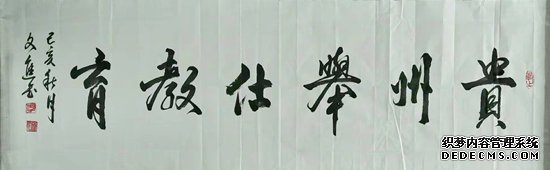 貴州舉仕教育
己亥秋月
文進書
织梦内容管理系统
DEDECMS.COM